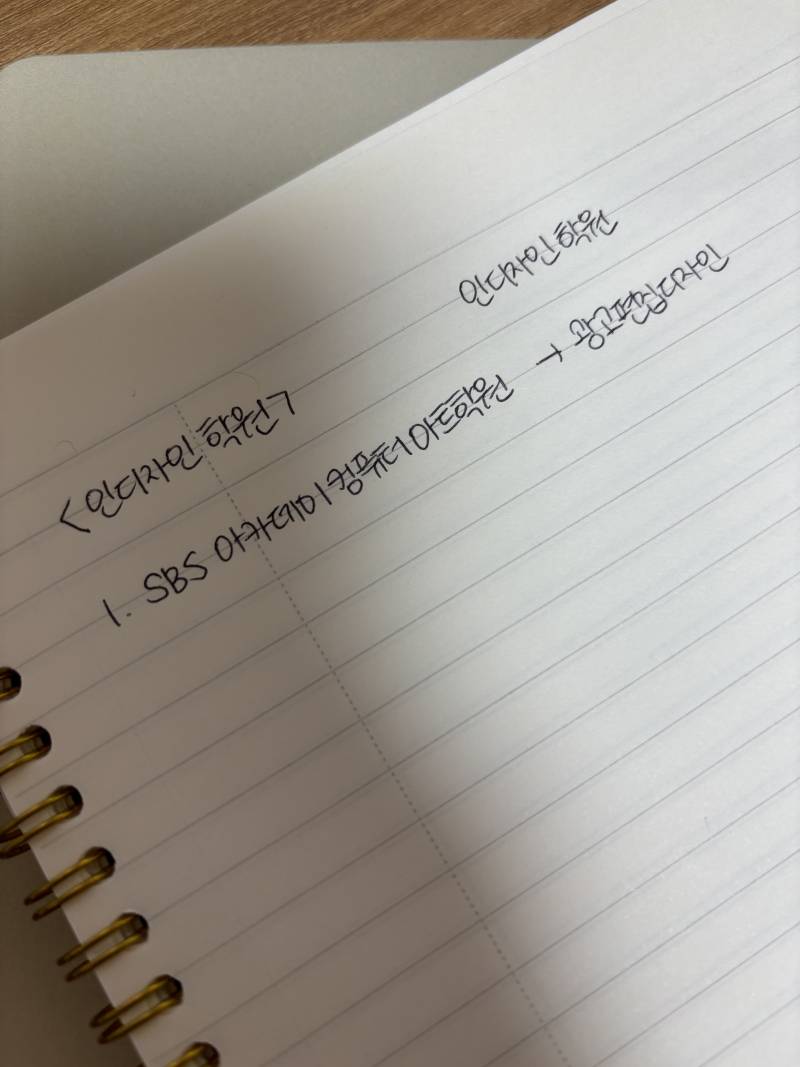 인디자인 학원
<인디자인 학원>
1. SBS 아카데미컴퓨터아트학원 → 광고편집디자인